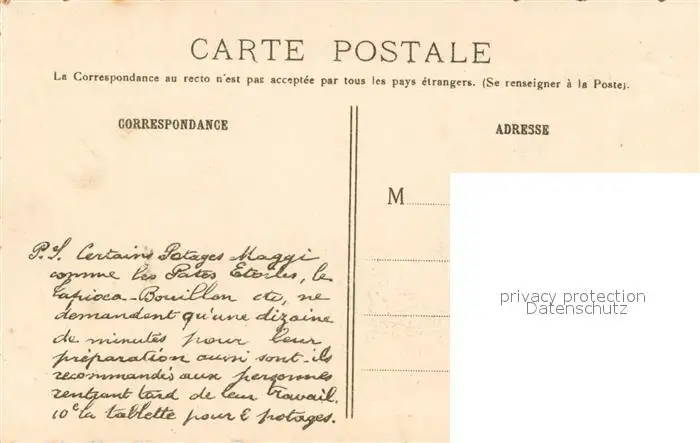 CARTE POSTALE
La Correspondance au recto n'est pas acceptée par tous les pays étrangers. (Se renseigner à la Poste).
CORRESPONDANCE
P.S. Certains Potages Maggi
comme les Pâtes Etoiles, le
Tapioca-Bouillon etc, ne
demandent qu'une dizaine
de minutes pour leur
préparation aussi sont-ils
recommandés aux personnes
rentrant tard de leur travail.
10c la tablette pour 2 potages.
ADRESSE
M
privacy protection
Datenschutz